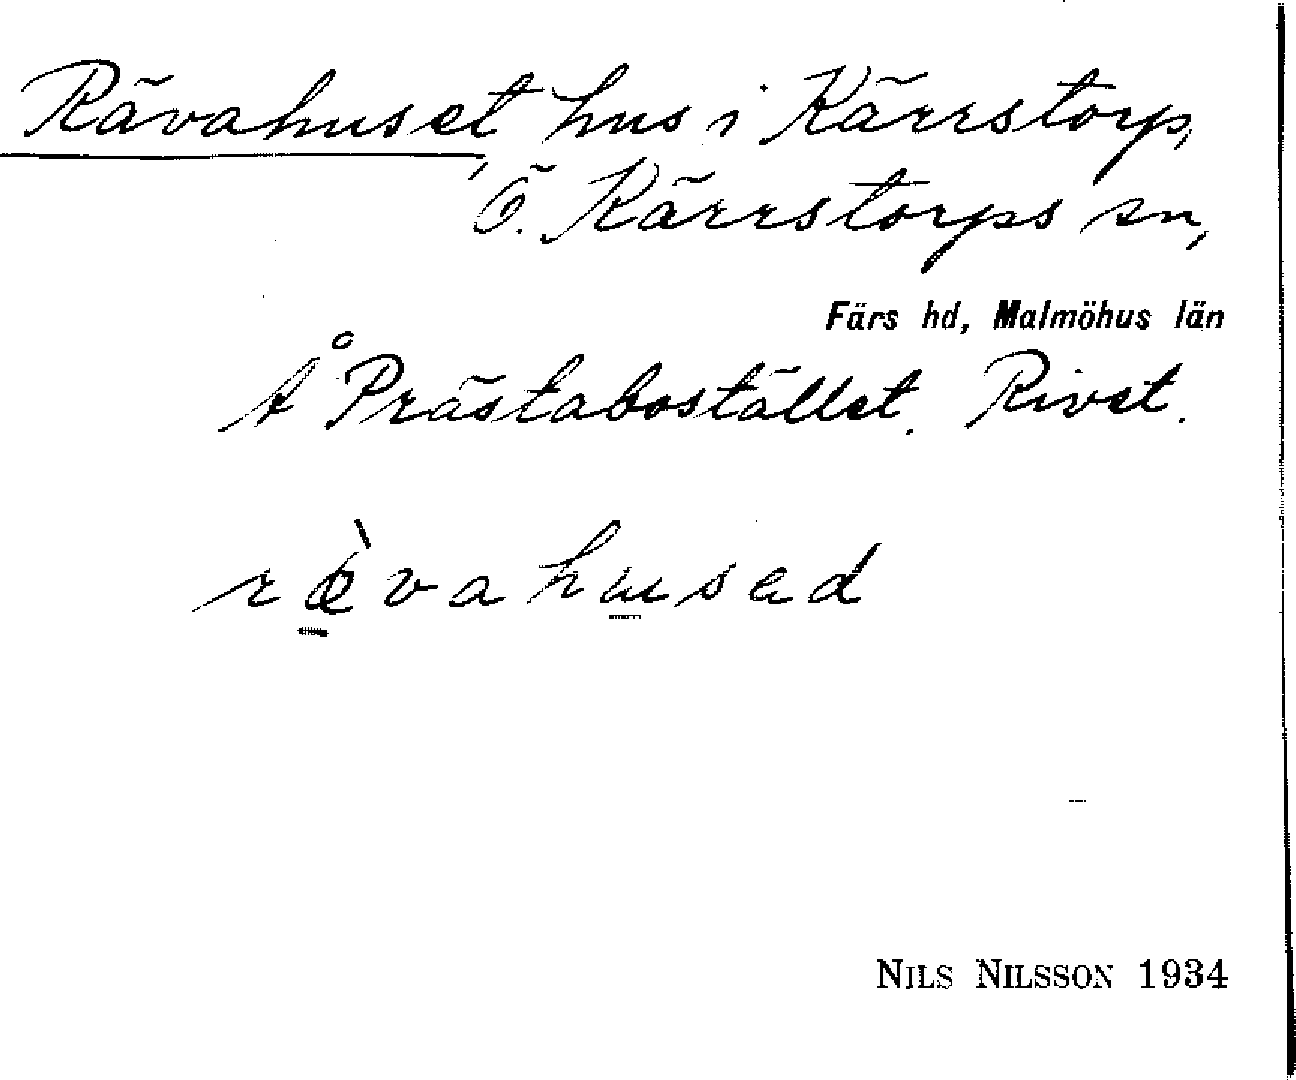 Rävahuset, hus i Kärrstorp,
Ö. Kärrstorps sn,
Färs hd, Malmöhus län
Å Prästabostället. Rivet.
ræ̀vahused
NILS NILSSON 1934